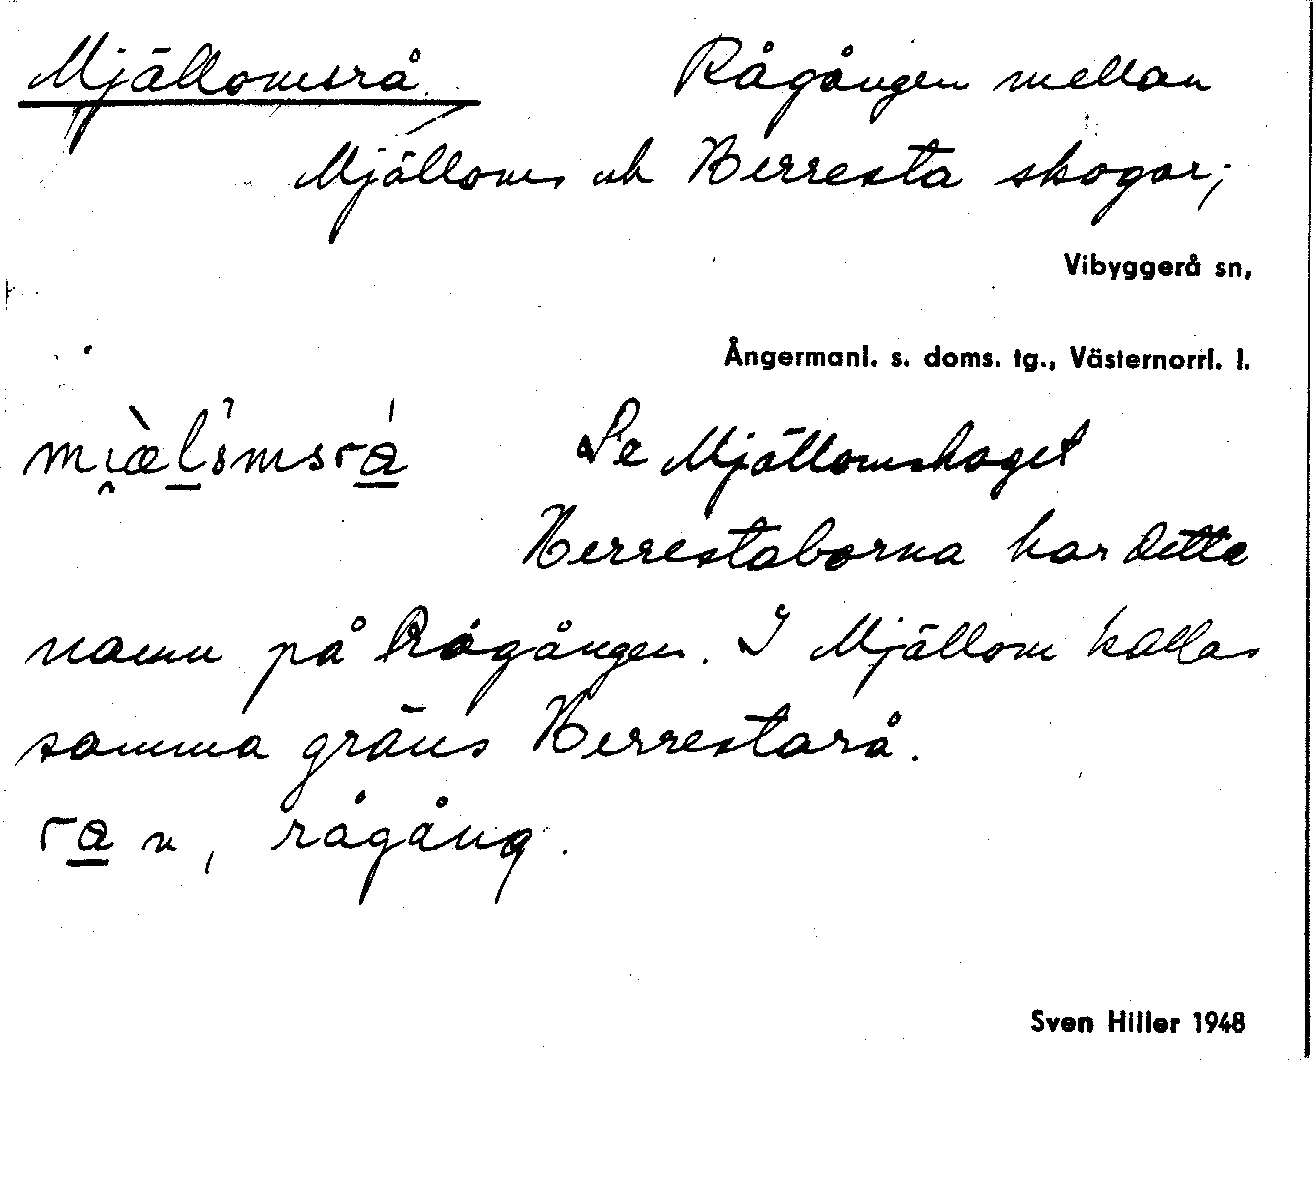 Mjällomsrå. Rågången mellan
Mjälloms och Herresta skogar;
Vibyggerå sn,
Ångermanl. s. doms. tg., Västernorrl. l.
Se Mjällomskaget
Herrestaborna har detta
namn på Rågången. I Mjällom kallas
samma gräns Herrestarå.
ra n, rågång.
Sven Hiller 1948